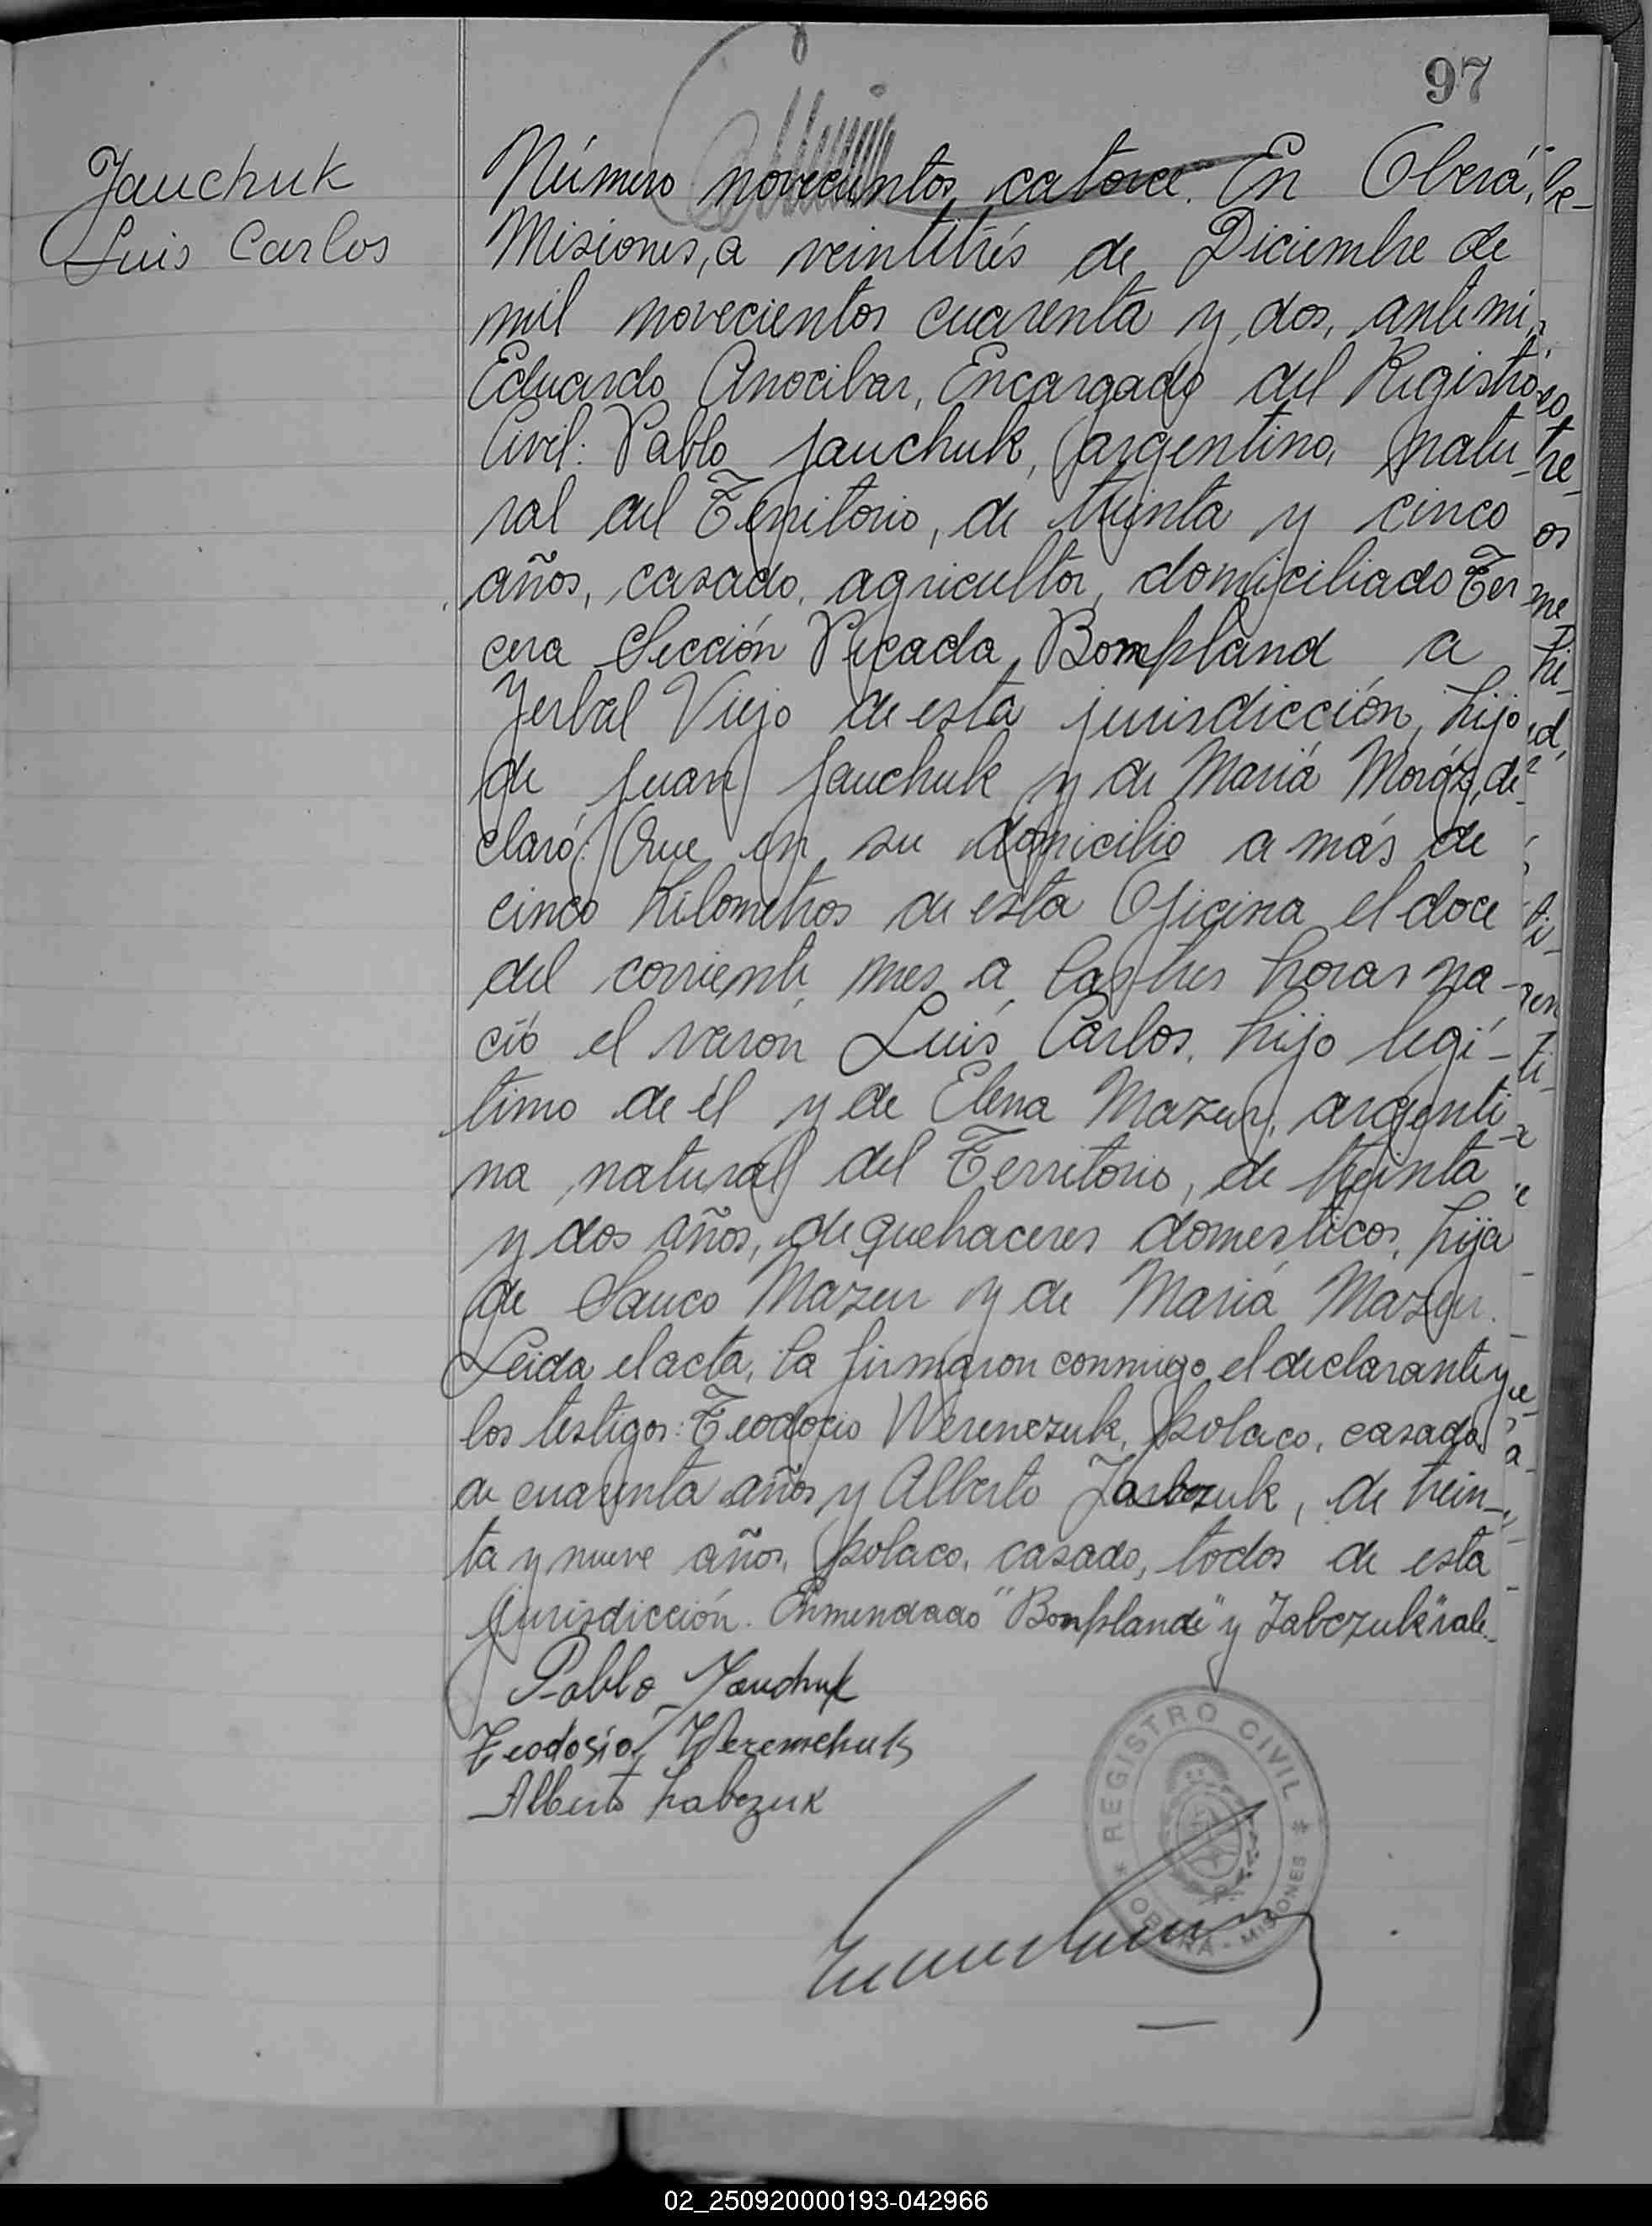 97
Jauchuk
Luis Carlos
Número novecientos catorce. En Oberá,
Misiones, a veintitrés de Diciembre de
mil novecientos cuarenta y dos, ante mi,
Eduardo Anocibar, Encargado del Registro
Civil: Pablo Jauchuk, argentino, natu-
ral del Territorio, de treinta y cinco
años, casado, agricultor, domiciliado Ter
cera Sección Picada Bompland a
Yerbal Viejo de esta jurisdicción, hijo
de Juan Jauchuk y de María Moróz, de-
claró: Que en su domicilio a más de
cinco kilometros de esta Oficina el doce
del corriente mes a las tres horas na-
ció el varón Luis Carlos, hijo legí-
timo de él y de Elena Mazur, argenti-
na natural del Territorio, de treinta
y dos años, de quehaceres domesticos, hija
de Sauco Mazur y de María Mazur.
Leida el acta, la firmaron conmigo el declarante y
los testigos: Teodocio Werenczuk, polaco, casado
de cuarenta años y Alberto Jabczuk, de trein-
ta y nueve años, polaco, casado, todos de esta
jurisdicción. Enmendado "Bonplande" y Jabczuk" vale.
Pablo Jauchuk
Teodosio Weremchuk
Alberto Labczuk
* REGISTRO CIVIL *
OBERA - MISIONES
02_250920000193-042966